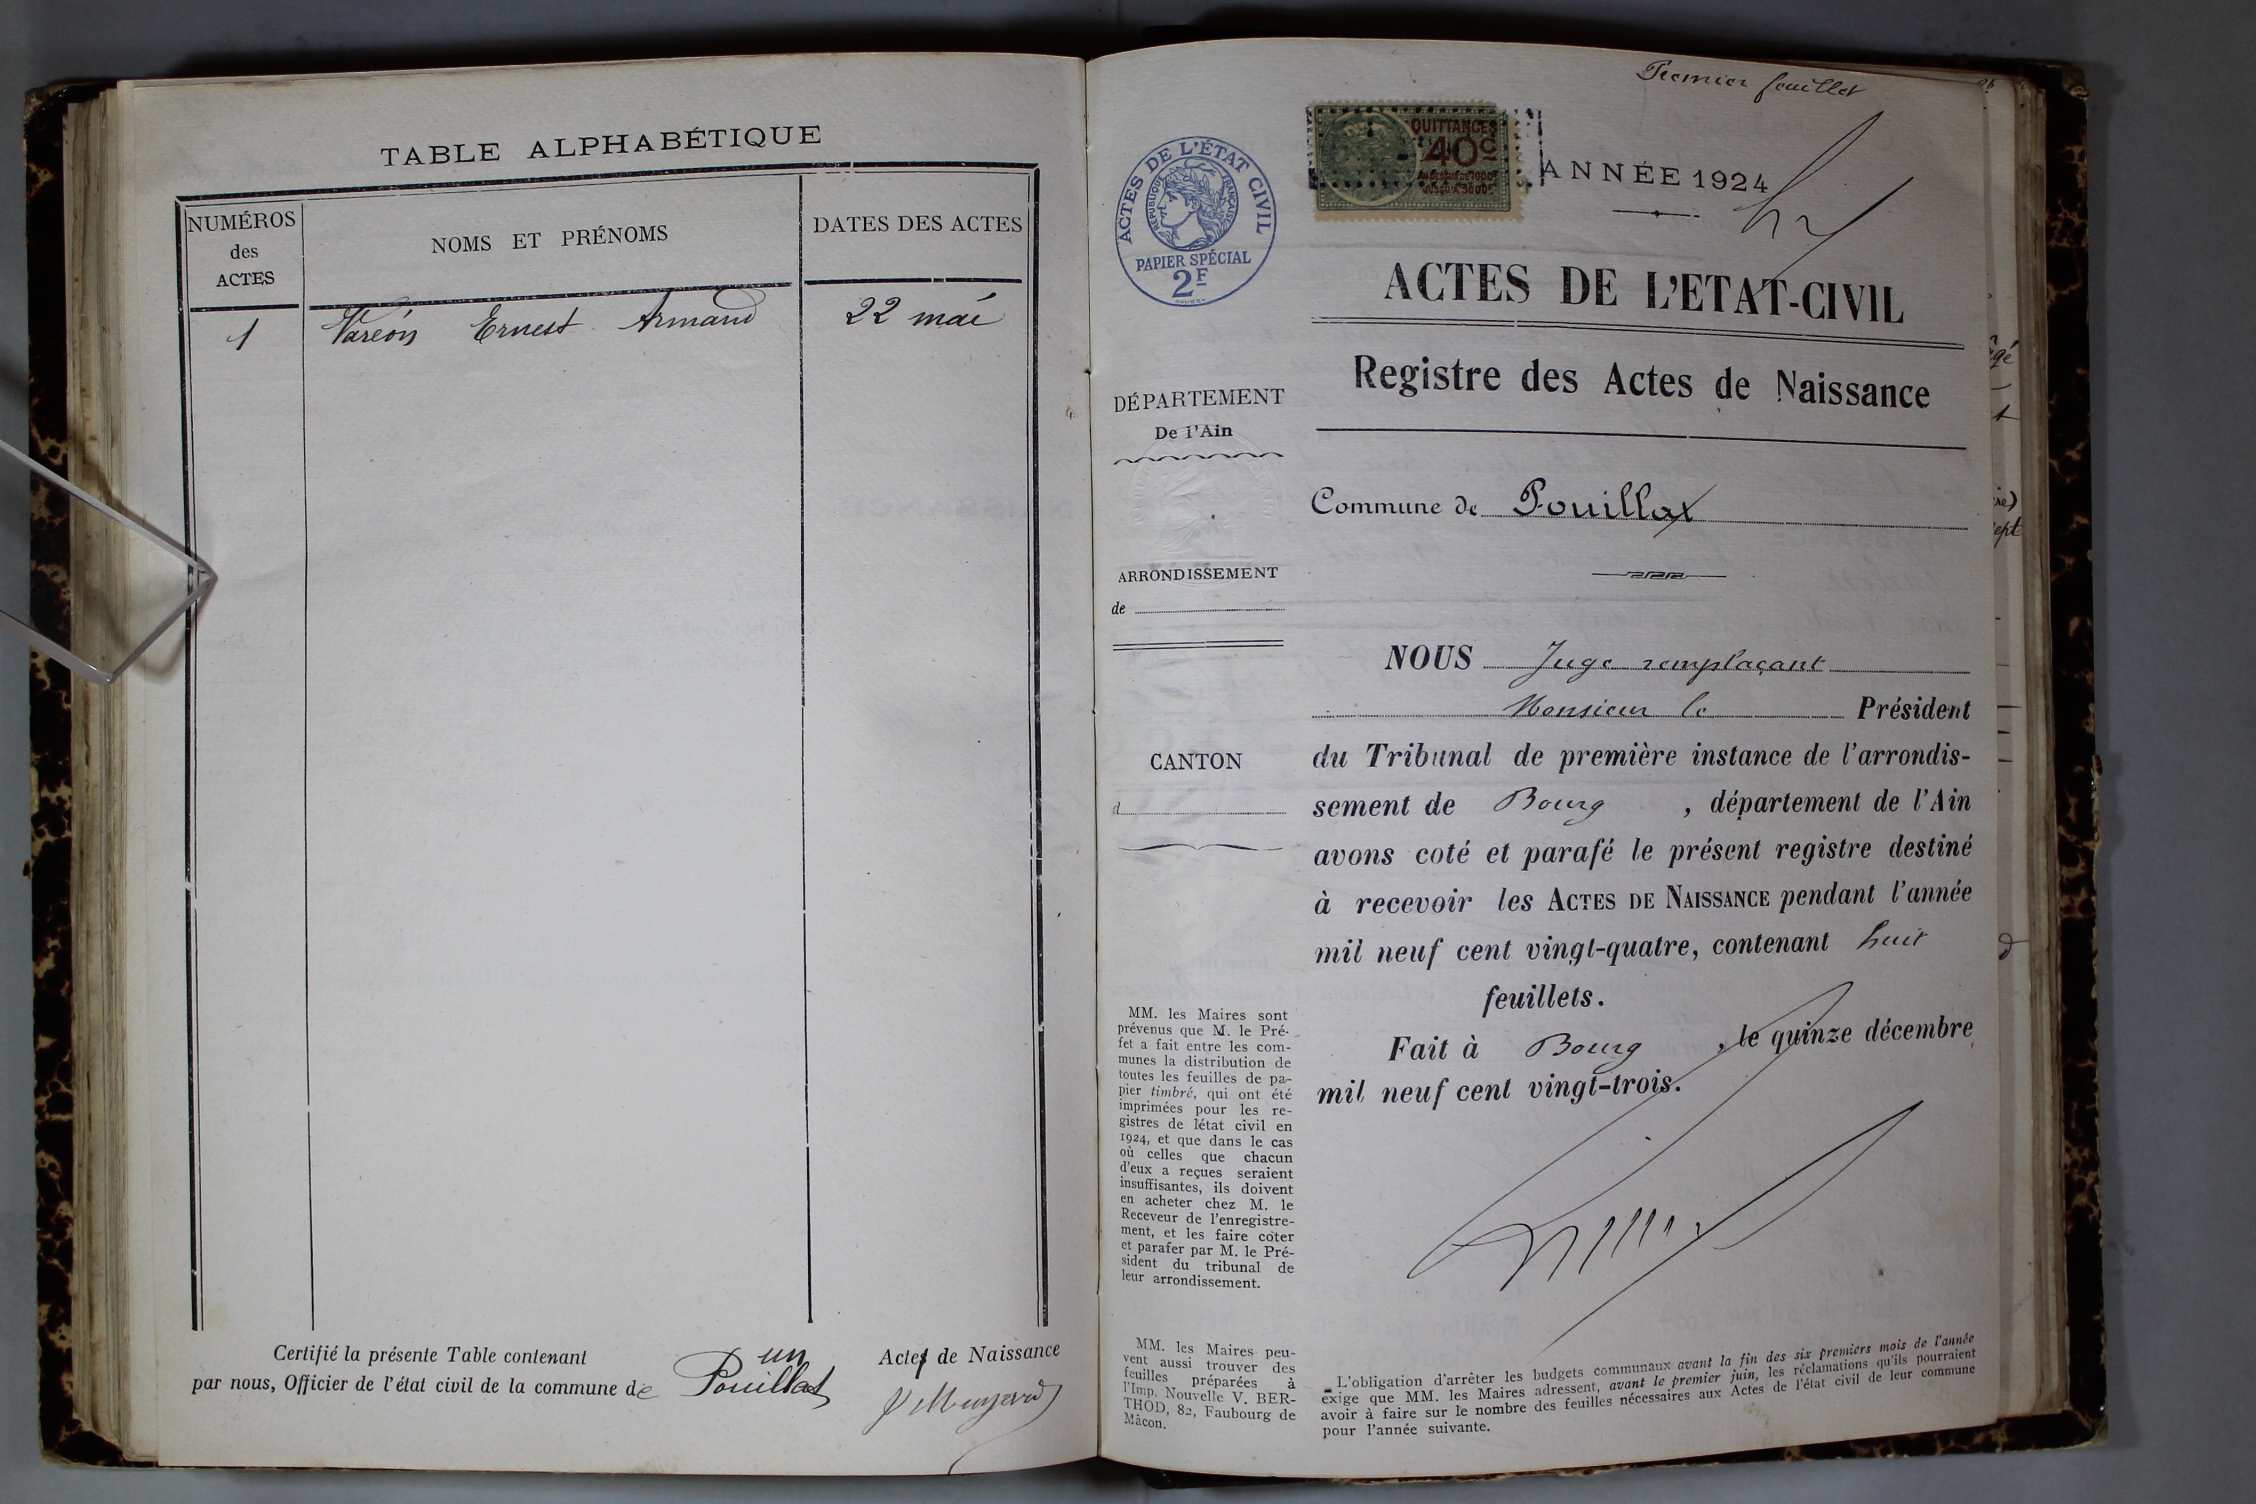 TABLE ALPHABÉTIQUE
NUMÉROS
des
ACTES
NOMS ET PRÉNOMS
DATES DES ACTES
1 Varéon Ernest Armand 22 mai
Certifié la présente Table contenant un Actes de Naissance
par nous, Officier de l'état civil de la commune de Pouillat
Premier feuillet
ACTES DE L'ÉTAT CIVIL
RÉPUBLIQUE FRANÇAISE
PAPIER SPÉCIAL
2F
QUITTANCES
40c
ANNÉE 1924
ACTES DE L'ETAT-CIVIL
Registre des Actes de Naissance
DÉPARTEMENT
De l'Ain
Commune de Pouillat
ARRONDISSEMENT
de
CANTON
d
NOUS Juge remplaçant
Monsieur le Président
du Tribunal de première instance de l'arrondis-
sement de Bourg, département de l'Ain
avons coté et parafé le présent registre destiné
à recevoir les ACTES DE NAISSANCE pendant l'année
mil neuf cent vingt-quatre, contenant huit
feuillets.
Fait à Bourg, le quinze décembre
mil neuf cent vingt-trois.
MM. les Maires sont
prévenus que M. le Pré-
fet a fait entre les com-
munes la distribution de
toutes les feuilles de pa-
pier timbré, qui ont été
imprimées pour les re-
gistres de létat civil en
1924, et que dans le cas
où celles que chacun
d'eux a reçues seraient
insuffisantes, ils doivent
en acheter chez M. le
Receveur de l'enregistre-
ment, et les faire coter
et parafer par M. le Pré-
sident du tribunal de
leur arrondissement.
MM. les Maires peu-
vent aussi trouver des
feuilles préparées à
l'Imp. Nouvelle V. BER-
THOD, 82, Faubourg de
Mâcon.
L'obligation d'arrêter les budgets communaux avant la fin des six premiers mois de l'année
exige que MM. les Maires adressent, avant le premier juin, les réclamations qu'ils pourraient
avoir à faire sur le nombre des feuilles nécessaires aux Actes de l'état civil de leur commune
pour l'année suivante.